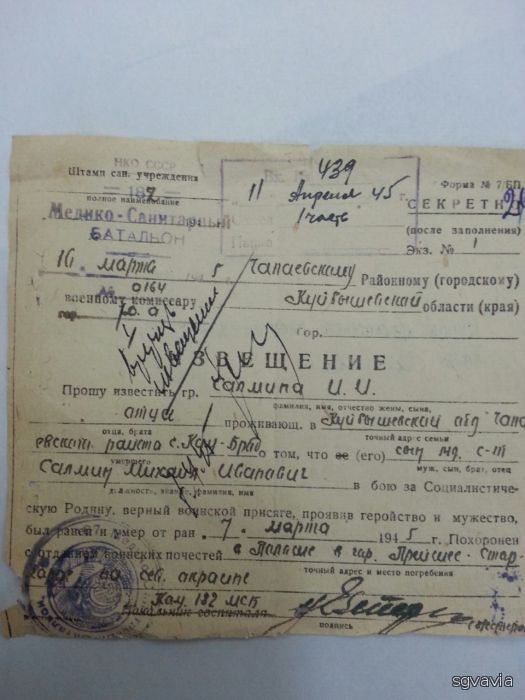 НКО СССР
Штамп сан. учреждения
439
Форма № 7/БП
полное наименование
11 Апреля 45 г.
СЕКРЕТНО
Медико-Санитарный
1 часть
(после заполнения)
БАТАЛЬОН
Экз. № 1
16 марта 5 Чапаевскому Районному (городскому)
№ 0164
военному комиссару Куйбышевской области (края)
гор.
гор.
ИЗВЕЩЕНИЕ
вручить извещение
Прошу известить гр. Салмина И. И.
фамилия, имя, отчество жены, сына,
отца, брата
проживающ. в Куйбышевский
точный адрес семьи
о том, что ее (его) сын мл. с-т
умершего
муж, сын, брат, отец
Салмин Михаил Иванович в бою за Социалистиче-
должность, звание, фамилия, имя
скую Родину, верный воинской присяге, проявив геройство и мужество,
был ранен и умер от ран 7. марта 1945 г. Похоронен
с отданием воинских почестей в Польше в гор.
точный адрес и место погребения
на сев. окраине
Ком. 182 МСБ
Начальник госпиталя
подпись
sgvavia